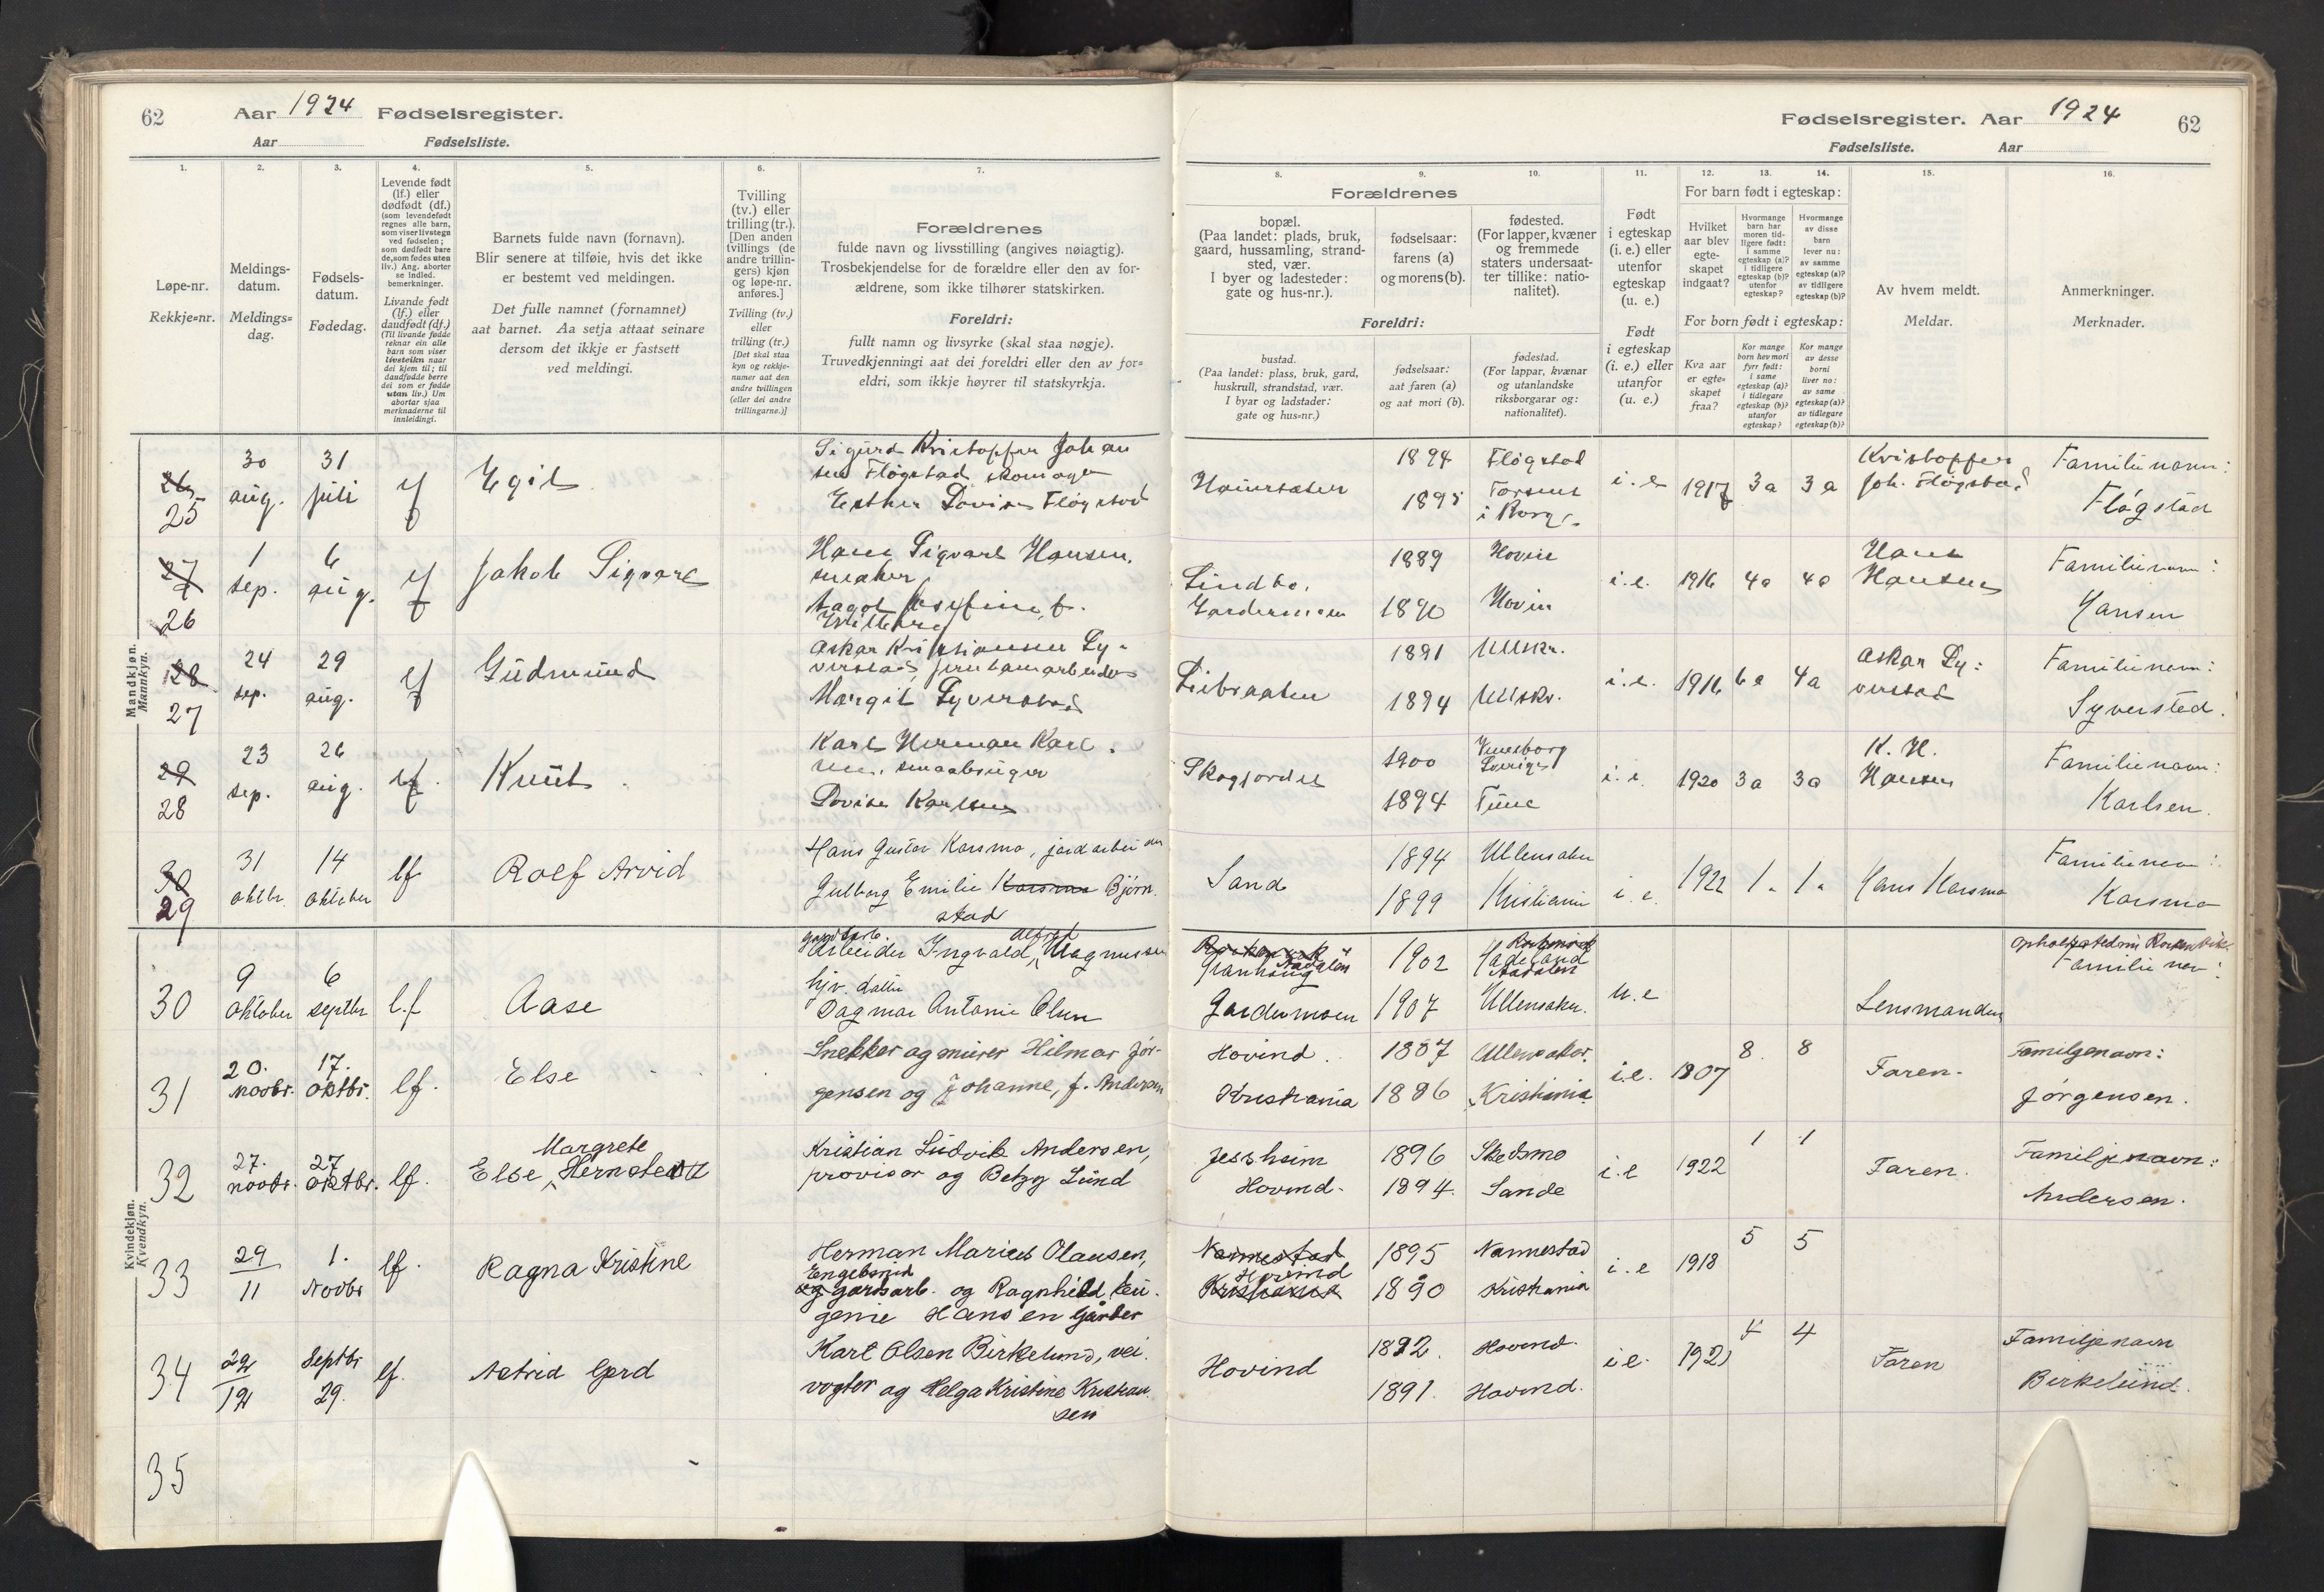 62
Aar 1924 Fødselsregister.
Aar Fødselsliste.
Fødselsregister. Aar 1924
62
Fødselsliste. Aar
1.
Løpe-nr.
Rekkje=nr.
2.
Meldings-
datum.
Meldings=
dag.
3.
Fødsels-
datum.
Fødedag.
4.
Levende født
(lf.) eller
dødfødt (df.)
(som levendefødt
regnes alle barn,
som viser livstegn
ved fødselen;
som dødfødt bare
de, som fødes uten
liv.) Ang. aborter
se indled.
bemerkninger.
Livande født
(lf.) eller
daudfødt (df.)
(Til livande fødde
reknar ein alle
barn som viser
livsteikn naar
dei kjem til; til
daudfødde berre
dei som er fødde
utan liv.) Um
abortar sjaa
merknaderne til
innleidingi.
5.
Barnets fulde navn (fornavn).
Blir senere at tilføie, hvis det ikke
er bestemt ved meldingen.
Det fulle namnet (fornamnet)
aat barnet. Aa setja attaat seinare
dersom det ikkje er fastsett
ved meldingi.
6.
Tvilling
(tv.) eller
trilling (tr.).
[Den anden
tvillings (de
andre trillin-
gers) kjøn
og løpe-nr.
anføres.]
Tvilling (tv.)
eller
trilling (tr.)
[Det skal staa
kyn og rekkje-
numer aat den
andre tvillingen
(eller dei andre
trillingarne.)]
7.
Forældrenes
fulde navn og livsstilling (angives nøiagtig).
Trosbekjendelse for de forældre eller den av for-
ældrene, som ikke tilhører statskirken.
Foreldri:
fullt namn og livsyrke (skal staa nøgje).
Truvedkjenningi aat dei foreldri eller den av for=
eldri, som ikkje høyrer til statskyrkja.
Forældrenes
8.
bopæl.
(Paa landet: plads, bruk,
gaard, hussamling, strand-
sted, vær.
I byer og ladesteder:
gate og hus-nr.).
9.
fødselsaar:
farens (a)
og morens (b).
10.
fødested.
(For lapper, kvæner
og fremmede
staters undersaat-
ter tillike: natio-
nalitet).
Foreldri:
bustad.
(Paa landet: plass, bruk, gard,
huskrull, strandstad, vær.
I byar og ladstader:
gate og hus=nr.)
fødselsaar:
aat faren (a)
og aat mori (b).
fødestad.
(For lappar, kvænar
og utanlandske
riksborgarar og:
nationalitet).
11.
Født
i egteskap
(i. e.) eller
utenfor
egteskap
(u. e.)
Født
i egteskap
(i. e.) eller
utanfor
(u. e.)
12. 13. 14.
For barn født i egteskap:
Hvilket
aar blev
egte-
skapet
indgaat?
Hvormange
barn har
moren tid-
ligere født:
i samme
egteskap (a)?
i tidligere
egteskap (b)?
utenfor
egteskap?
Hvormange
av disse
barn
lever nu:
av samme
egteskap (a)?
av tidligere
egteskap (b)?
For born født i egteskap:
Kva aar
er egte=
skapet
fraa?
Kor mange
born hev mori
fyrr født:
i same
egteskap (a)?
i tidlegare
egteskap (b)?
utanfor
egteskap?
Kor mange
av desse
borni
liver no:
av same
egteskap (a)?
av tidlegare
egteskap (b)?
15.
Av hvem meldt.
Meldar.
16.
Anmerkninger.
Merknader.
Mandkjøn.
Mannkyn.
26 25 30 aug. 31 juli lf Egil
Sigurd Kristoffer Johan
sen Fløgstad skomager
Esther Lovise Fløgstad
1894 Fløgstad
1895
i Borge. i. e 1917 3a 3a
Kristoffer
Joh. Fløgstad
Familienavn:
Fløgstad
27 26 1 sep. 6 aug. lf Jakob Sigvart
Hans Sigvart Hansen,
Josefine f.
Lindbo,
Gardermoen
1889 Hovin
1890 Hovin
i. e. 1916 4a 4a
Hans
Hansen
Familienavn:
Hansen
28 27 24 sep. 29 aug. lf Gudmund
Askar Kristiansen Sy-
verstad, jernbanearbeider
Margit Syverstad
1891 Ullskr.
1894 Ullskr.
i. e. 1916 6a 4a
Askar Sy:
verstad
Familienavn:
Syversted.
29 28 23 sep. 26 aug. lf. Knut
Karl Herman Karl.
sen, smaabruger
Lovise Karlsen
Skogfordel
1900
Sverige
1894 Tune
i. e. 1920 3a 3a
K. H.
Hansen
Familienavn:
Karlsen.
30 29 31 oktbr. 14 oktober lf Rolf Arvid
Hans Gustav Karsmo, jordarbeider
Gulborg Emilie Karsmo Bjørn-
stad
Sand
1894 Ullensaker
1899 Kristiania
i. e. 1922 1. 1.
Hans Karsmo
Familienavn:
Karsmo
Kvindekjøn.
Kvendkyn.
30 9 oktober 6 septbr l.f Aase
gaardsarb. Alfred
Arbeider Ingvald, Magnussen
hjv. datter
Dagmar Antonie Olsen
Aadalen
Gardermoen
1902 Hadeland
Aadalen
1907 Ullensaker.
u. e
Lensmanden
Familienavn:
31 20. novbr. 17. oktbr. lf. Else
Snekker og murer Hilmar Jør-
gensen og Johanne, f. Andersen
Hovind.
Kristiania
1887 Ullensaker.
1886 Kristiania
i.e. 1907 8. 8
Faren.
Familgenavn:
Jørgensen.
32 27. novbr. 27 oktbr. lf.
Margrete
Else, Hernstedt
Kristian Ludvik Andersen,
provisor og Betzy Lund
Jessheim
Hovind.
1896 Skedsmo
1894. Sande
i.e 1922 1 1
Faren.
Familjenavn:
Andersen.
33 29/11 1. Novbr lf. Ragna Kristine
Herman Marius Olausen,
Engebraad
og gardsarb. og Ragnhild Eu-
genie Hansen Gårder
Nannestad
Hovind
Kristiania
1895 Nannestad
1890 Kristiania
i.e 1918 5 5
34 22/12 Septbr 29. lf. Astrid Gerd
Karl Olsen Birkelund, vei.
vogter og Helga Kristine Kristian.
sen
Hovind
1892. Hovind.
1891. Hovind.
i.e. 1921 4 4
Faren
Familjenavn
Birkelund.
35